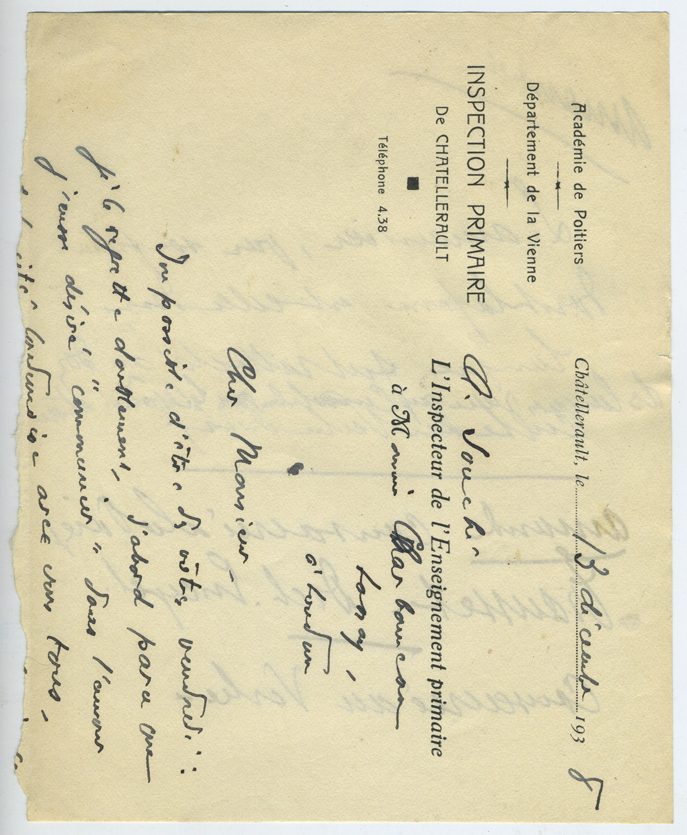 Académie de Poitiers
Département de la Vienne
INSPECTION PRIMAIRE
De CHATELLERAULT
Téléphone 4.38
Châtellerault, le 13 décembre 1938
L'Inspecteur de l'Enseignement primaire
à Monsieur Charbonneau
à Loudun
Cher Monsieur
Impossible d'être des vôtres vendredi :
je le regrette doublement, d'abord parce que
j'eusse désiré "communier" dans l'amour
avec vous tous,